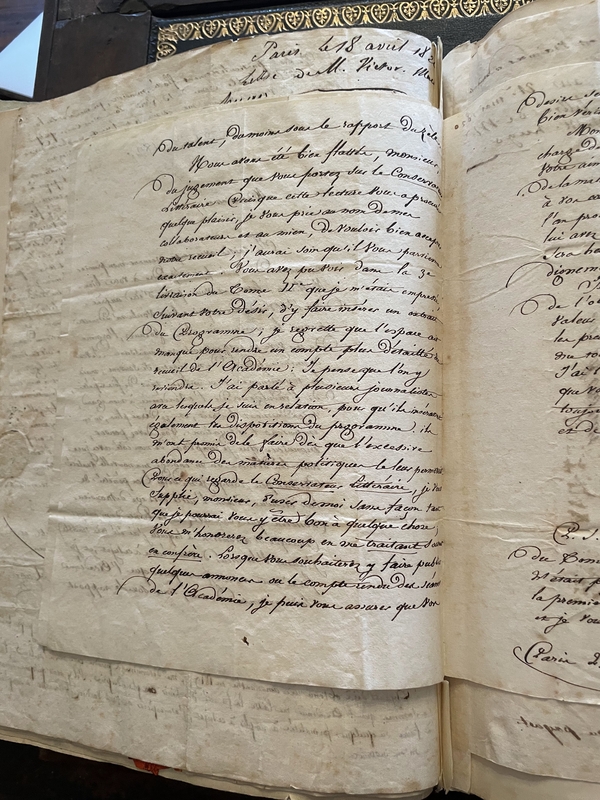 Paris, le 18 avril 18
Lettre de M. Victor. Hu
du talent, du moins sous le rapport du zèle.
Nous avons été bien flattés, monsieur,
du jugement que vous portez sur le Conservateur
Littéraire. Quoique cette lecture vous a procuré
quelque plaisir, je vous prie au nom de mes
collaborateurs et au mien, de vouloir bien accepter
notre recueil ; j'aurai soin qu'il vous parvienne
exactement. Vous avez pu voir dans la 3e
livraison du Tome IIe que je m'étais empressé
suivant votre désir, d'y faire insérer un extrait
du Programme ; je regrette que l'espace ait
manqué pour rendre un compte plus détaillé du
recueil de l'Académie : Je pense que l'on y
reviendra. J'ai parlé à plusieurs journalistes
avec lesquels je suis en relation, pour qu'ils insérassent
également les dispositions du programme ; ils
m'ont promis de le faire dès que l'excessive
abondance des matières politiques le leur permettra
Pour ce qui regarde le Conservateur Littéraire, je vous
supplie, monsieur, d'user de moi sans façon tant
que je pourrai vous y être bon à quelque chose ;
vous m'honorerez beaucoup en me traitant
en confrère. Lorsque vous souhaiterez y faire publier
quelques annonces ou le compte rendu des séances
de l'Académie, je puis vous assurer que vos
desire
bien
Mon
chargé
votre
de la
à vos
l'an
lui avez
sera
de l'
valeur
les
J'ai
que
toujours
et de
P. S.
du Tome
n'était
la premiè
et je vou
Paris 2
paquet.